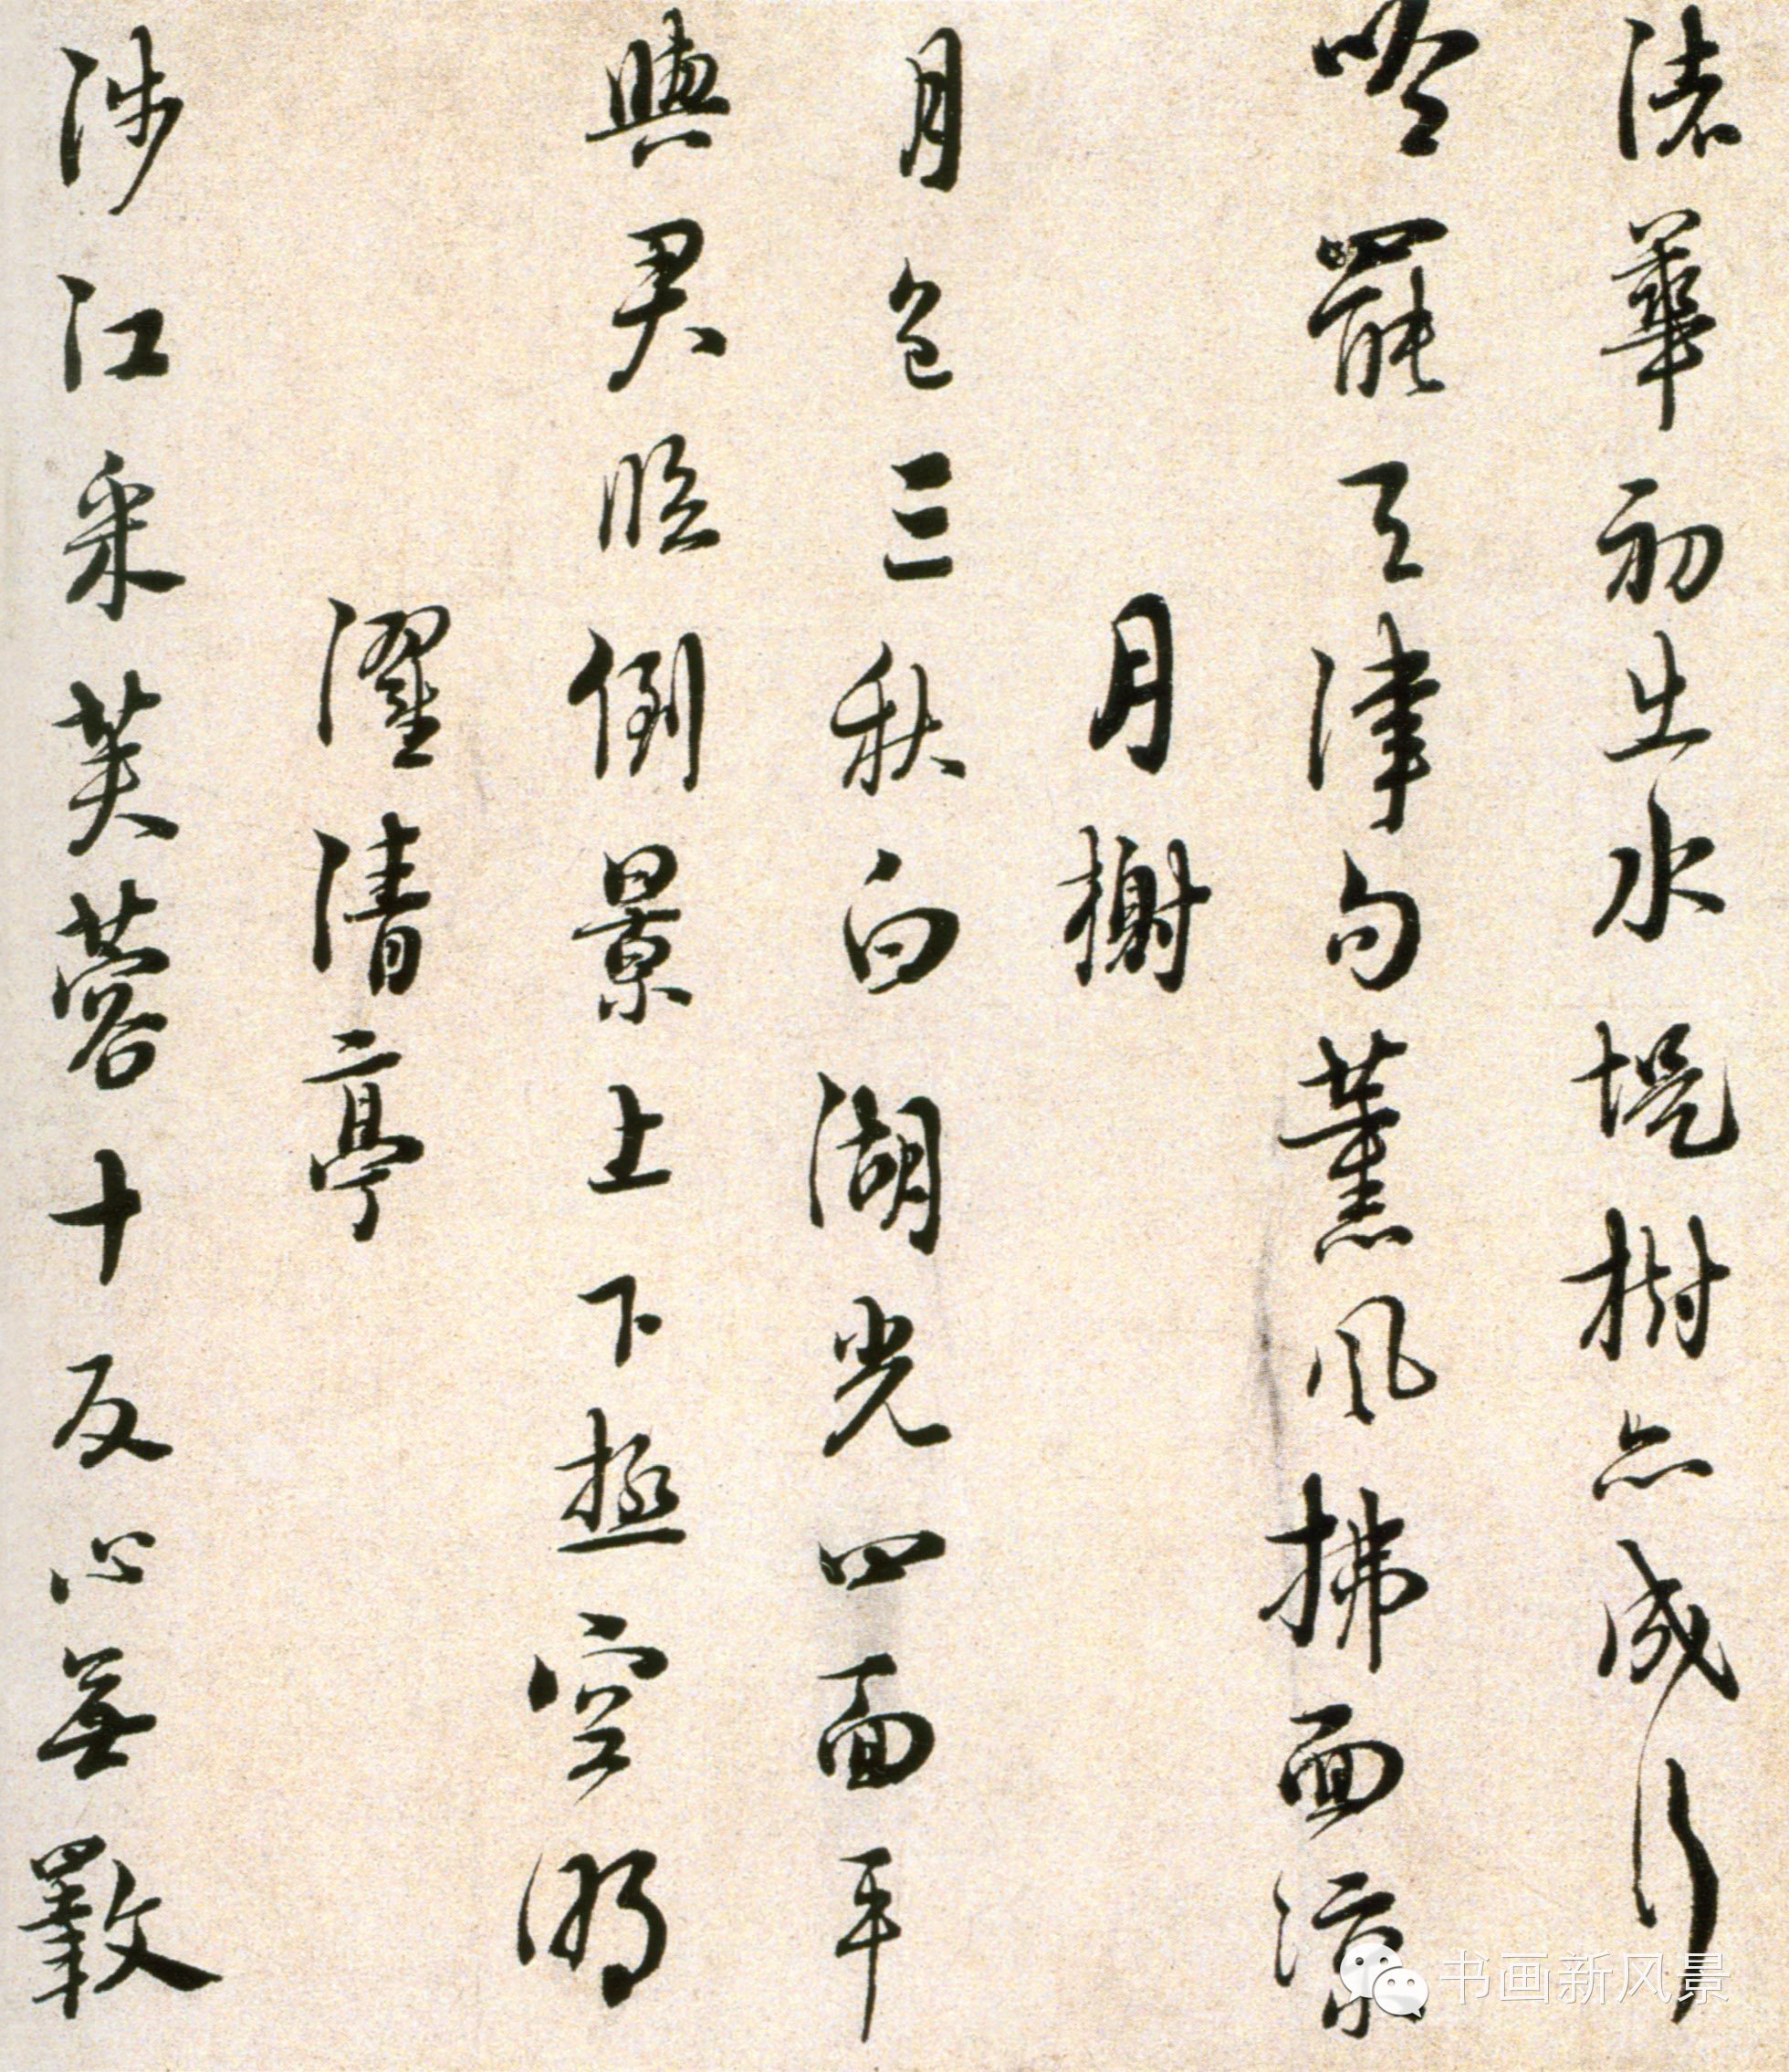 渚華初出水堤樹亦成行
吟罷天津句薰風拂面涼
月榭
月色三秋白湖光四面平
與君臨倒景上下極空明
濯清亭
涉江采芙蓉十反心無斁
书画新风景